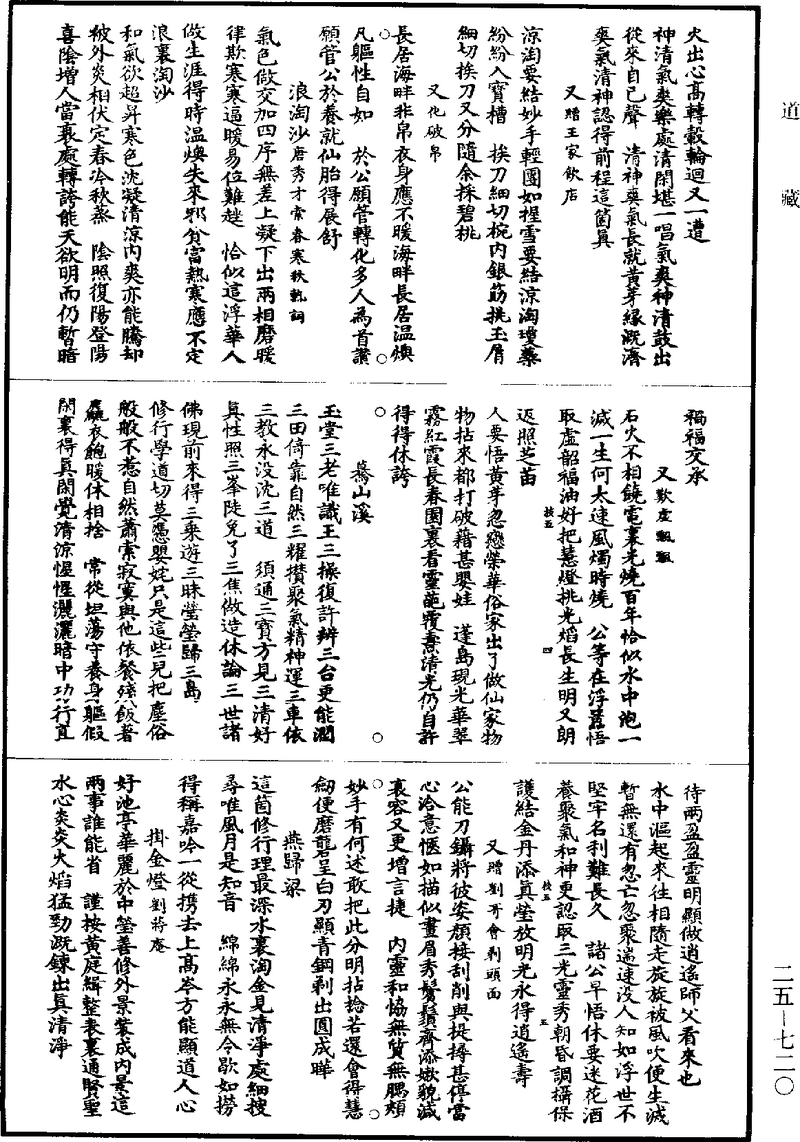 道藏
火出心高轉轂輪迴又一遭
神清氣爽樂處清閑堪一唱氣爽神清鼓出
從來自已聲　清神爽氣長就黃芽緣溉濟
爽氣清神認得前程這箇真
又贈王家飲店
涼淘要結妙手輕團如握雪要結涼淘瓊蘂
紛紛入寶槽　挨刀細切椀內銀筯挑玉屑
細切挨刀又分隨余採碧桃
又化破帛
長居海畔非帛衣身應不暖海畔長居温煥
凡軀性自如　於公願管轉化多人為首讚
願管公於養就仙胎得展舒
浪淘沙唐秀才索春寒秋熱詞
氣色做交加四序無差上凝下出兩相磨暖
律欺寒寒逼暖易位難趖　恰似這浮華人
做生涯得時温煥失來邪貧富熱寒應不定
浪裏淘沙
和氣欲超昇寒色沈凝清涼內爽亦能騰却
被外炎相伏定春冷秋蒸　陰照復陽登陽
喜陰增人當衰處轉誇能天欲明而仍暫暗
禍福交承
又歎虛飄飄
石火不相饒電裏光燒百年恰似水中泡一
滅一生何太速風燭時燒　公等在浮嚻悟
取虛韶福油好把慧燈挑光熖長生明又朗
返照芝苗
人要悟黃芽忽戀榮華俗家出了做仙家物
物拈來都打破藉甚嬰娃　蓬島現光華翠
霧紅霞長春園裏看靈葩覆燾清光仍自許
得得休誇
驀山溪
玉堂三老唯識王三操復許辨三台更能潤
三田倚靠自然三耀攢聚氣精神運三車依
三教永没沈三道　須通三寶方見三清好
真性照三峯陡免了三焦做造休論三世諸
佛現前來得三乘遊三昧瑩瑩歸三島
修行學道切莫憑嬰姹只是這些兒把塵俗
般般不惹自然蕭索寂寞與他依餐殘飯著
麤衣飽暖休相捨　常從坦蕩守養身軀假
閑裏得真閑覺清涼惺惺灑灑暗中功行直
待兩盈盈靈明顯做逍遙師父看來也
水中漚起來往相隨走旋旋被風吹便生滅
暫無還有忽亡忽聚遄速没人知如浮世不
堅牢名利難長久　諸公早悟休要迷花酒
養聚氣和神更認取三光靈秀朝昏調攝保
護結金丹添真瑩放明光永得逍遙壽
又贈劉哥會剃頭面
公能刀鑷將彼姿頹接刮削與提撏甚停當
心洽意愜如描似畫眉秀鬢鬚齊添嫩貌減
衰容又更增言捷　內靈和恊無貨無腮頰
妙手有何述敢把此分明拈捻若還會得慧
劒便磨礲呈白刃顯青鋼剃出圓成曄
燕歸梁
這箇修行理最深水裏淘金見清淨處細搜
尋唯風月是知音　綿綿永永無今歇如撈
得稱嘉唫一從携去上高岑方能顯道人心
掛金燈劉蔣庵
好池亭華麗於中瑩善修外景裝成內景這
兩事誰能省　謹按黃庭緝整表裏通賢聖
水心炎炎火焰猛勁溉鍊出真清淨
二五—七二〇